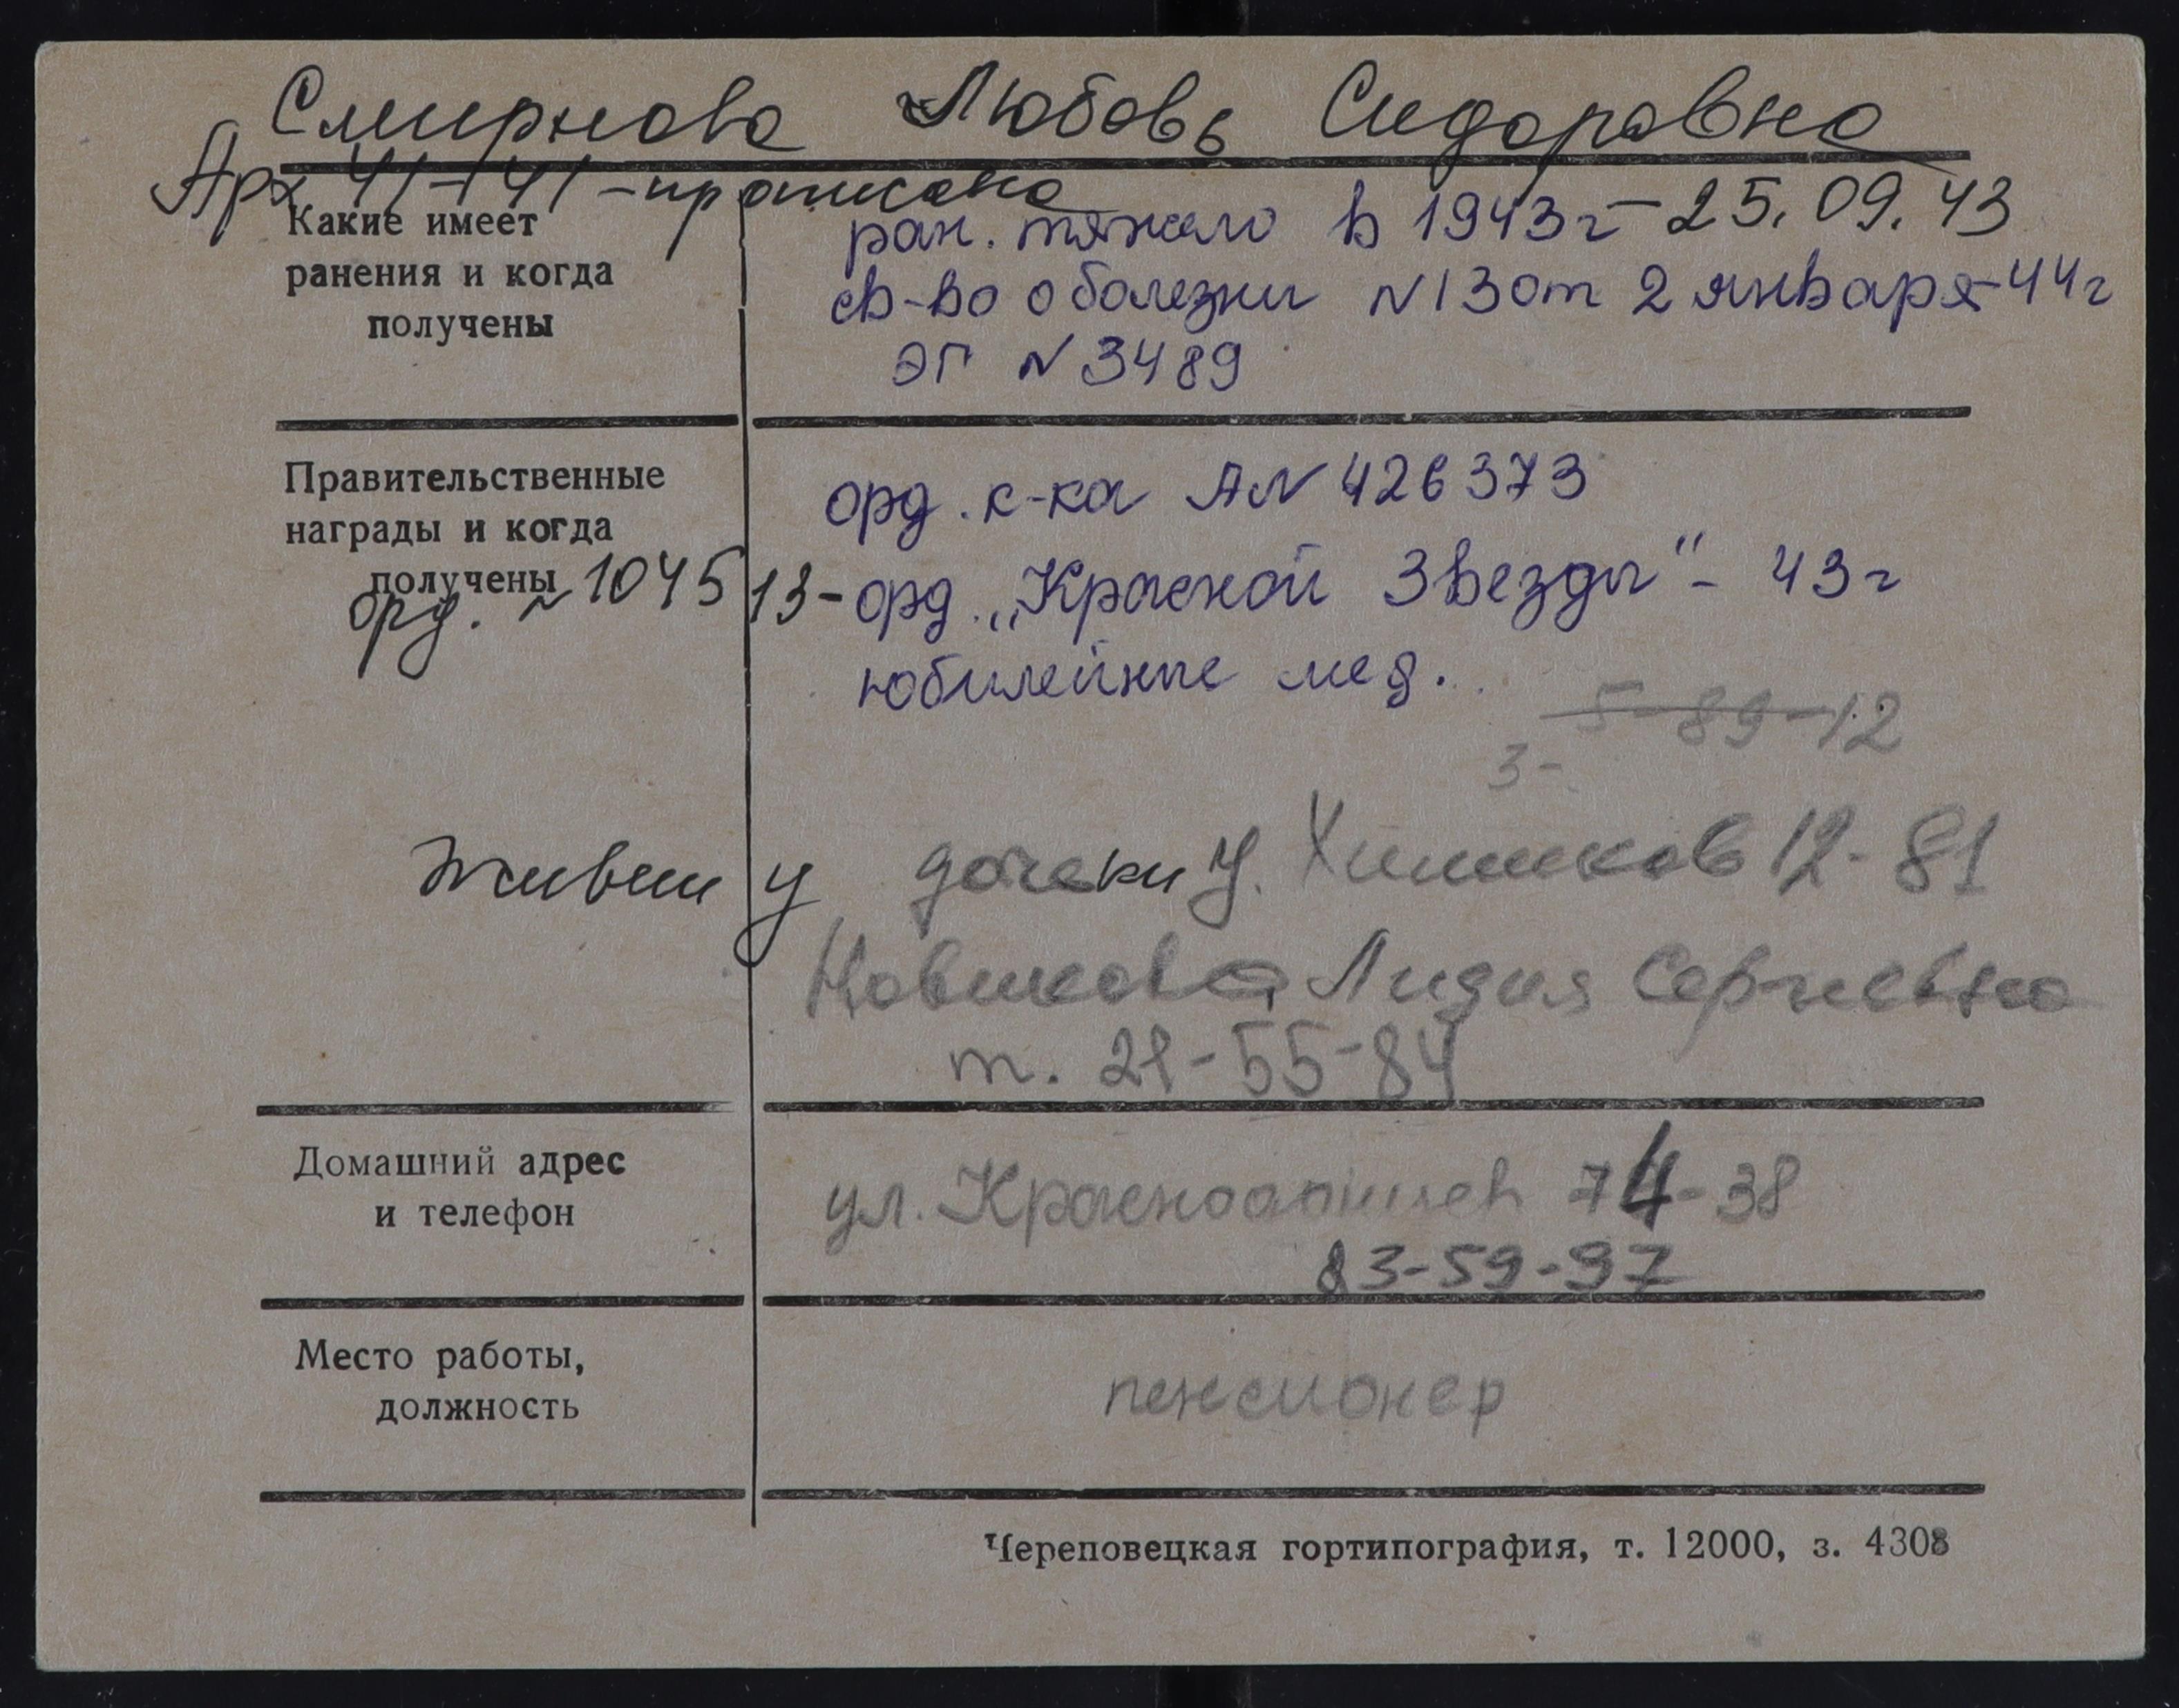 Смирнова Любовь Сидоровна
Арх 41-141 - прописана
Какие имеет
ранения и когда
получены
ран. тяжело в 1943г - 25.09.43
св-во о болезни N 13 от 2 января 44г
ЭГ N 3489
Правительственные
награды и когда
получены
орд. к-ка А N 426373
орд. N 104513 - орд. „Красной Звезды" - 43г
юбилейные мед.
5-89-12
3-
живет у дочеки у. Химиков 12-81
Новикова Лидия Сергиевна
т. 21-55-84
Домашний адрес
и телефон
ул. 74-38
23-59-97
Место работы,
должность
пенсионер
Череповецкая гортипография, т. 12000, з. 4308